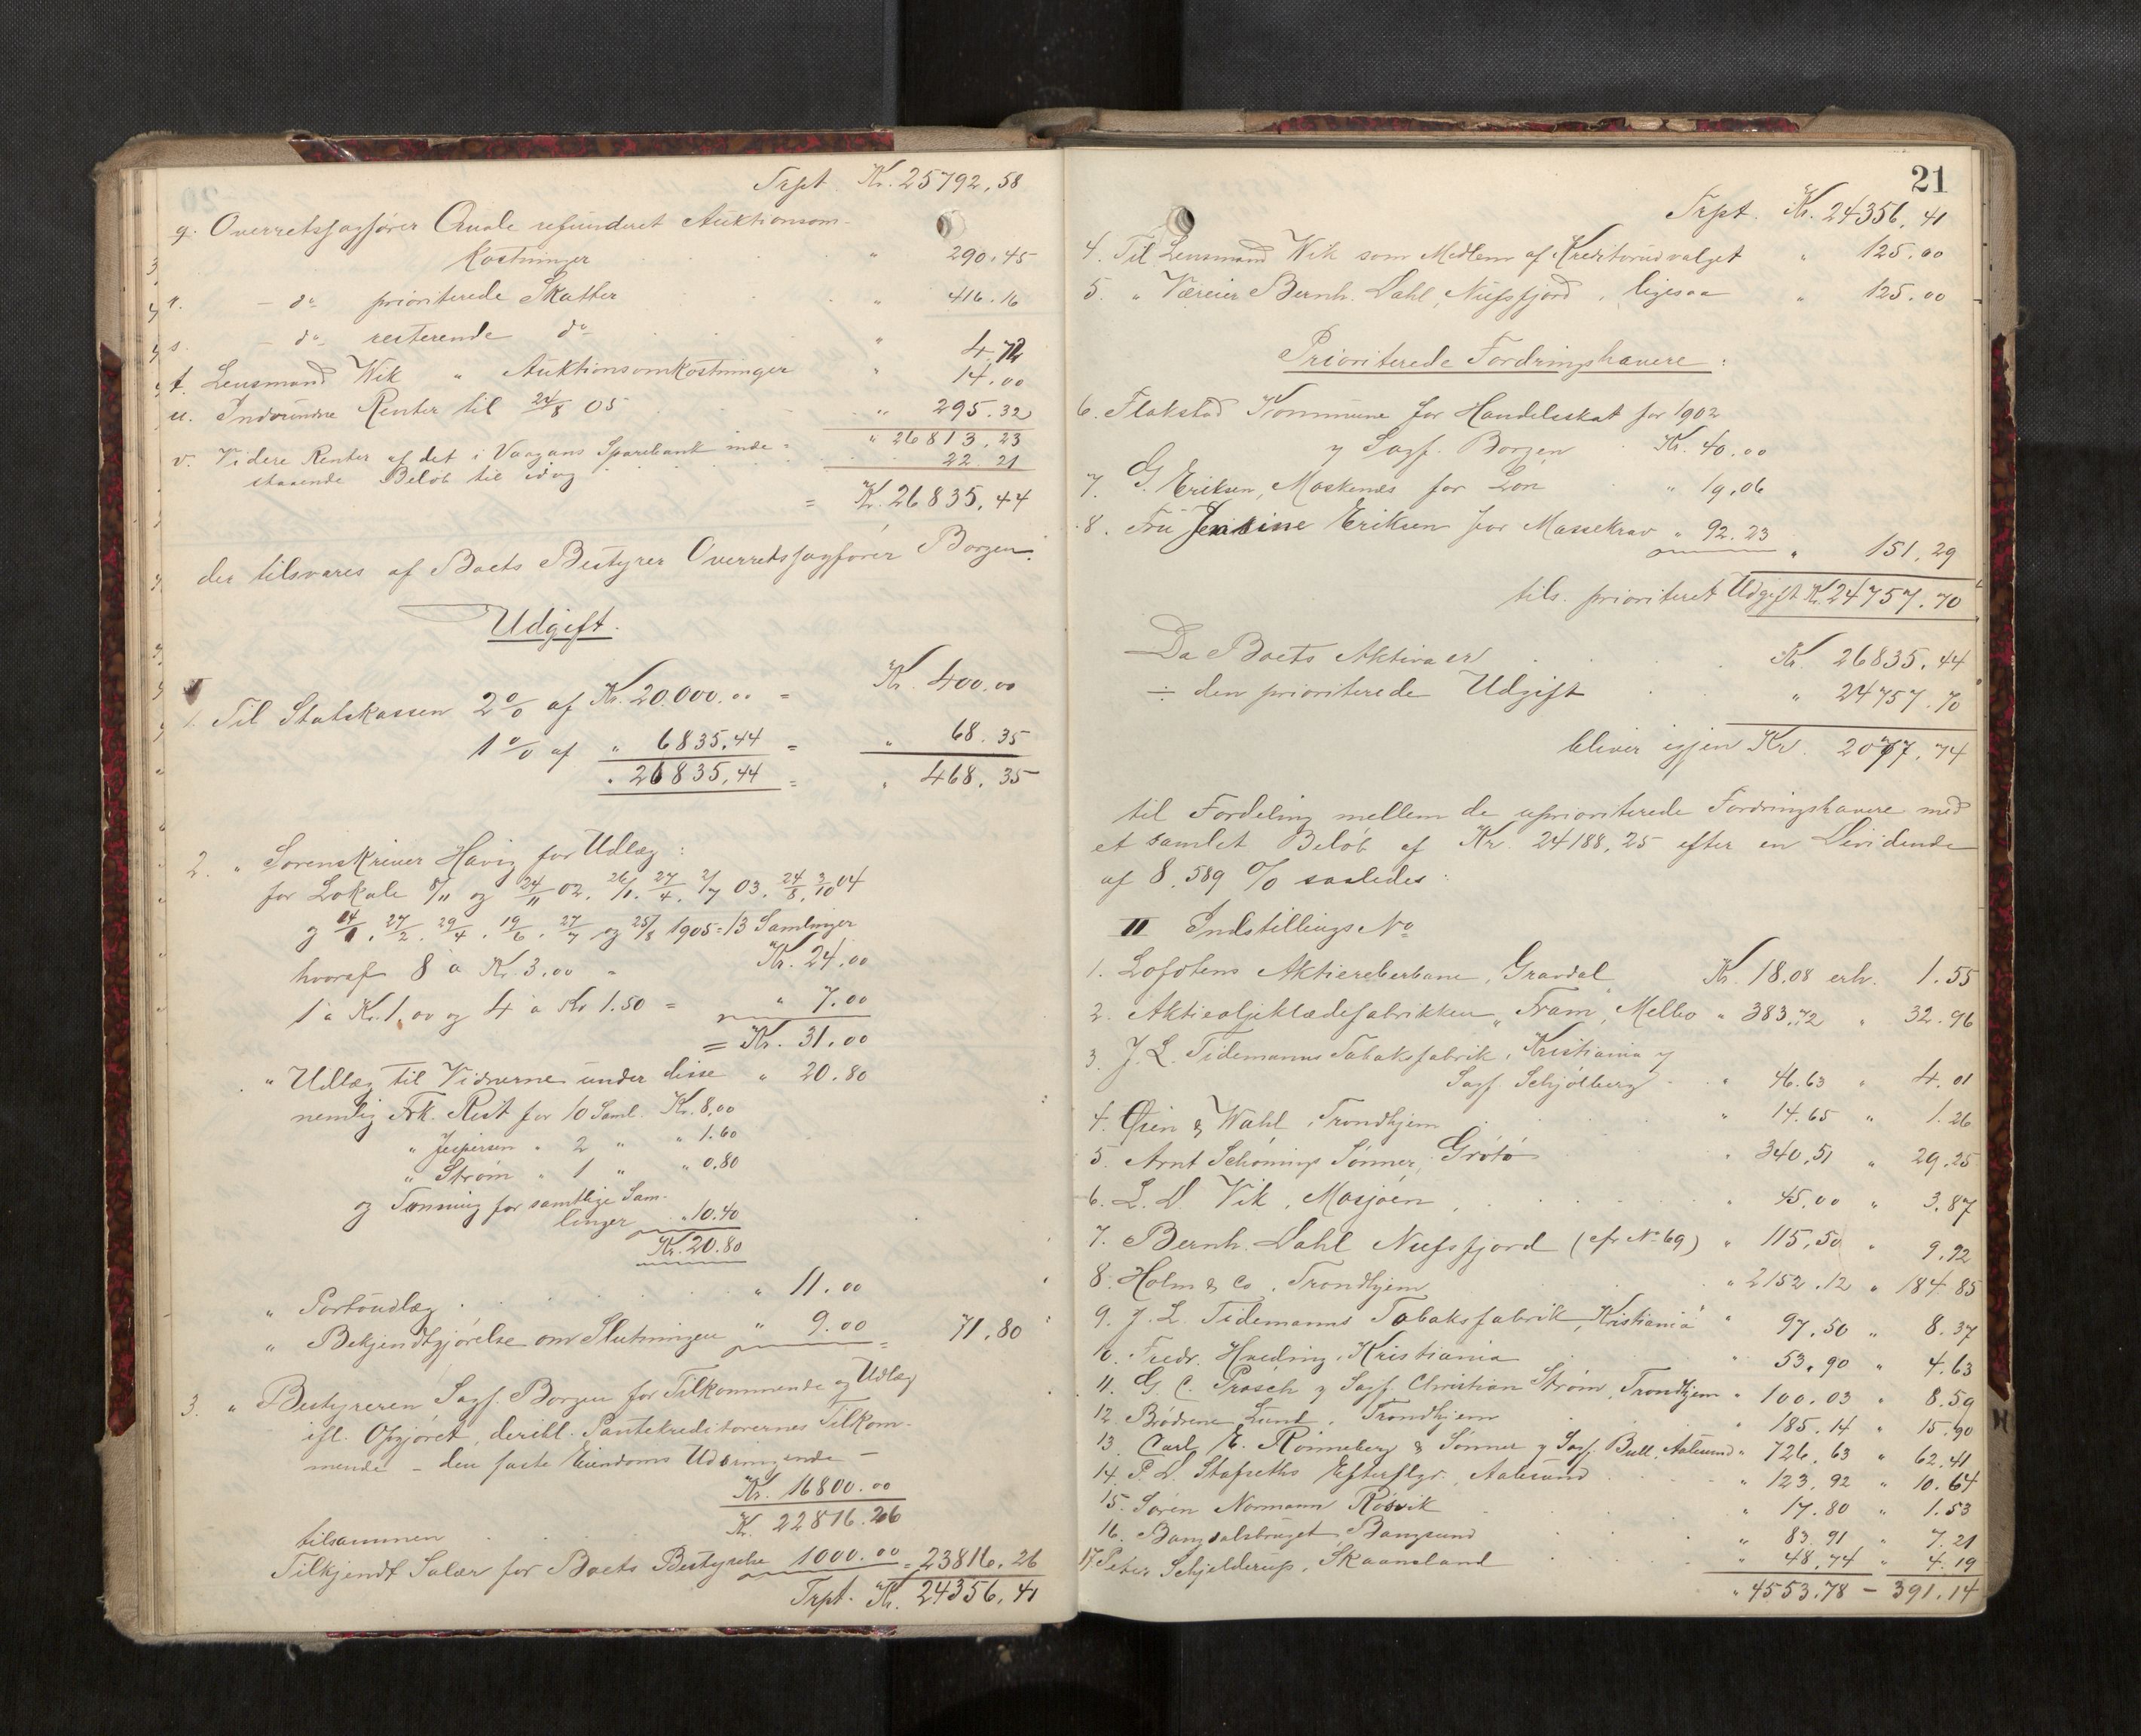 Trpt. Kr. 25792,58
q. Overretssagfører Qvale refunderet Auktionsom-
kostninger " 290.45
r. - do prioriterede Skatter " 416.16
s. - do resterende do " 4.72
t. Lensmand Wik " Auktionsomkostninger " 14.00
u. Indvundne Renter til 24/8 05 " 295.32
" 26813.23
v. Videre Renter af det i Vaagans Sparebank inde-
staaende Beløb til idag 22.21
= Kr. 26835,44
der tilsvares af Boets Bestyrer Overretssagfører Borgen.
Udgift.
1. Til Statskassen 2% af Kr. 20.000.00 = Kr. 400.00
1% af " 6835,44 = " 68.35
" 26835,44 = " 468.35
2. " Sorenskriver Havig for Udlæg:
for Lokale 8/11 og 24/11 02. 26/1. 27/4. 2/7 03. 24/8. 3/10 04
og 14/1. 27/2. 29/4. 19/6. 27/7 og 25/8 1905 = 13 Samlinger
hvoraf 8 à Kr. 3.00 = Kr. 24.00
1 à Kr. 1,00 og 4 à Kr 1.50 = " 7.00
= Kr. 31.00
" Udlæg til Vidnerne under disse " 20.80
nemlig Frk. Rist for 10 Saml. Kr. 8,00
" Jespersen " 2 " " 1.60
" Strøm " 1 " " 0.80
og Tønning for samtlige Sam-
linger " 10.40
Kr. 20.80
" Portoudlæg " 11.00
" Bekjendtgjørelse om Slutningen " 9.00 = 71.80
3. " Bestyreren Sagf. Borgen for Tilkommende og Udlæg
ifl. Opgjøret, deribl. Pantekreditorernes Tilkom-
mende - den faste Eiendoms Udbringende -
Kr. 16800.00
tilsammen K. 22816.26
Tilkjendt Salær for Boets Bestyrelse 1000.00 = 23816.26
Trpt. Kr. 24356,41
21
Trpt. Kr. 24356,41
4. Til Lensmand Wik som Medlem af Kreditorudvalget " 125.00
5. " Væreier Bernh. Dahl, Nufsfjord, ligesaa " 125.00
Prioriterede Fordringshavere:
6. Flakstad Kommune for Handelsskat for 1902
v Sagf. Borgen Kr. 40.00
7. G. Eriksen, Moskenes for Løn " 19,06
8. Fru Jensine Eriksen for Massekrav " 92.23 " 151,29
tils. prioriteret Udgift Kr. 24757.70
Da Boets Aktiva er Kr. 26835.44
÷ den prioriterede Udgift " 24757.70
bliver igjen Kr. 2077.74
til Fordeling mellem de uprioriterede Fordringshavere med
et samlet Beløb af Kr. 24188,25 efter en Dividende
af 8.589 % saaledes:
II Indstillings No
1. Lofotens Aktiereberbane, Gravdal Kr. 18.08 erh. 1.55
2. Aktieoljeklædefabrikken "Fram", Melbo " 383,72 " 32.96
3. J. L. Tidemanns Tabaksfabrik, Kristiania v
Sagf. Schjølberg " 46.63 " 4.01
4. Øien & Wahl, Trondhjem " 14.65 " 1.26
5. Arnt Schønings Sønner, Grøtø " 340,51 " 29.25
6. L. D. Vik, Mosjøen, " 45.00 " 3,87
7. Bernh. Dahl Nufsfjord (cfr No 69) " 115,50 " 9.92
8. Holm & Co, Trondhjem " 2152.12 " 184.85
9. J. L. Tidemanns Tobaksfabrik, Kristiania " 97,50 " 8.37
10. Fredr. Hveding, Kristiania " 53,90 " 4.63
11. G. C. Prøsch v Sagf. Christian Strøm, Trondhjem " 100.03 " 8.59
12. Brødrene Lund, Trondhjem " 185.14 " 15.90
13. Carl E. Rønneberg & Sønner v Sagf. Bull, Aalesund " 726,63 " 62.41
14. P. D. Stafseths Efterflgr., Aalesund " 123,92 " 10.64
15. Søren Normann Røsvik " 17.80 " 1.53
16. Bangdalsbruget, Bangsund " 83,91 " 7.21
17. Peter Schjelderup, Skaansland " 48,74 " 4.19
" 4553.78 - 391.14